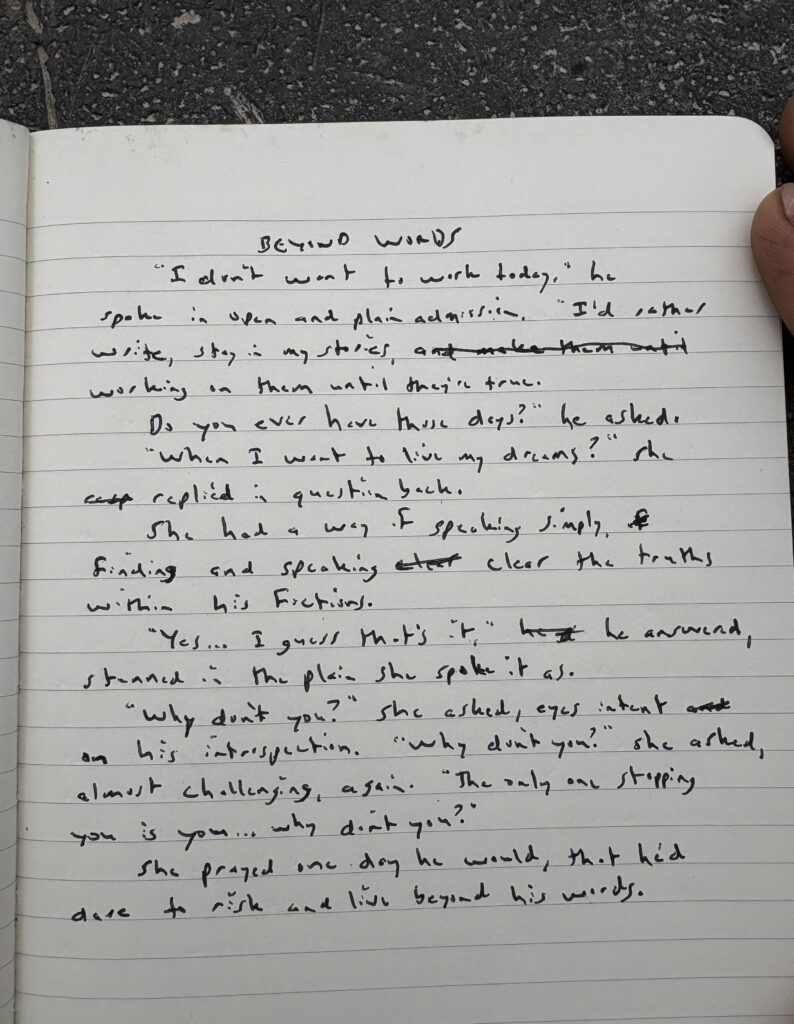 BEYOND WORDS
"I don't want to work today," he
spoke in open and plain admission. "I'd rather
write, stay in my stories, and make them until
working on them until they're true.
Do you ever have those days?" he asked.
"When I want to live my dreams?" she
replied in question back.
She had a way of speaking simply,
finding and speaking clear clear the truths
within his fictions.
"Yes... I guess that's it," he he answered,
stunned in the plain she spoke it as.
"Why don't you?" she asked, eyes intent and
on his introspection. "Why don't you?" she asked,
almost challenging, again. "The only one stopping
you is you... why don't you?"
She prayed one day he would, that he'd
dare to risk and live beyond his words.